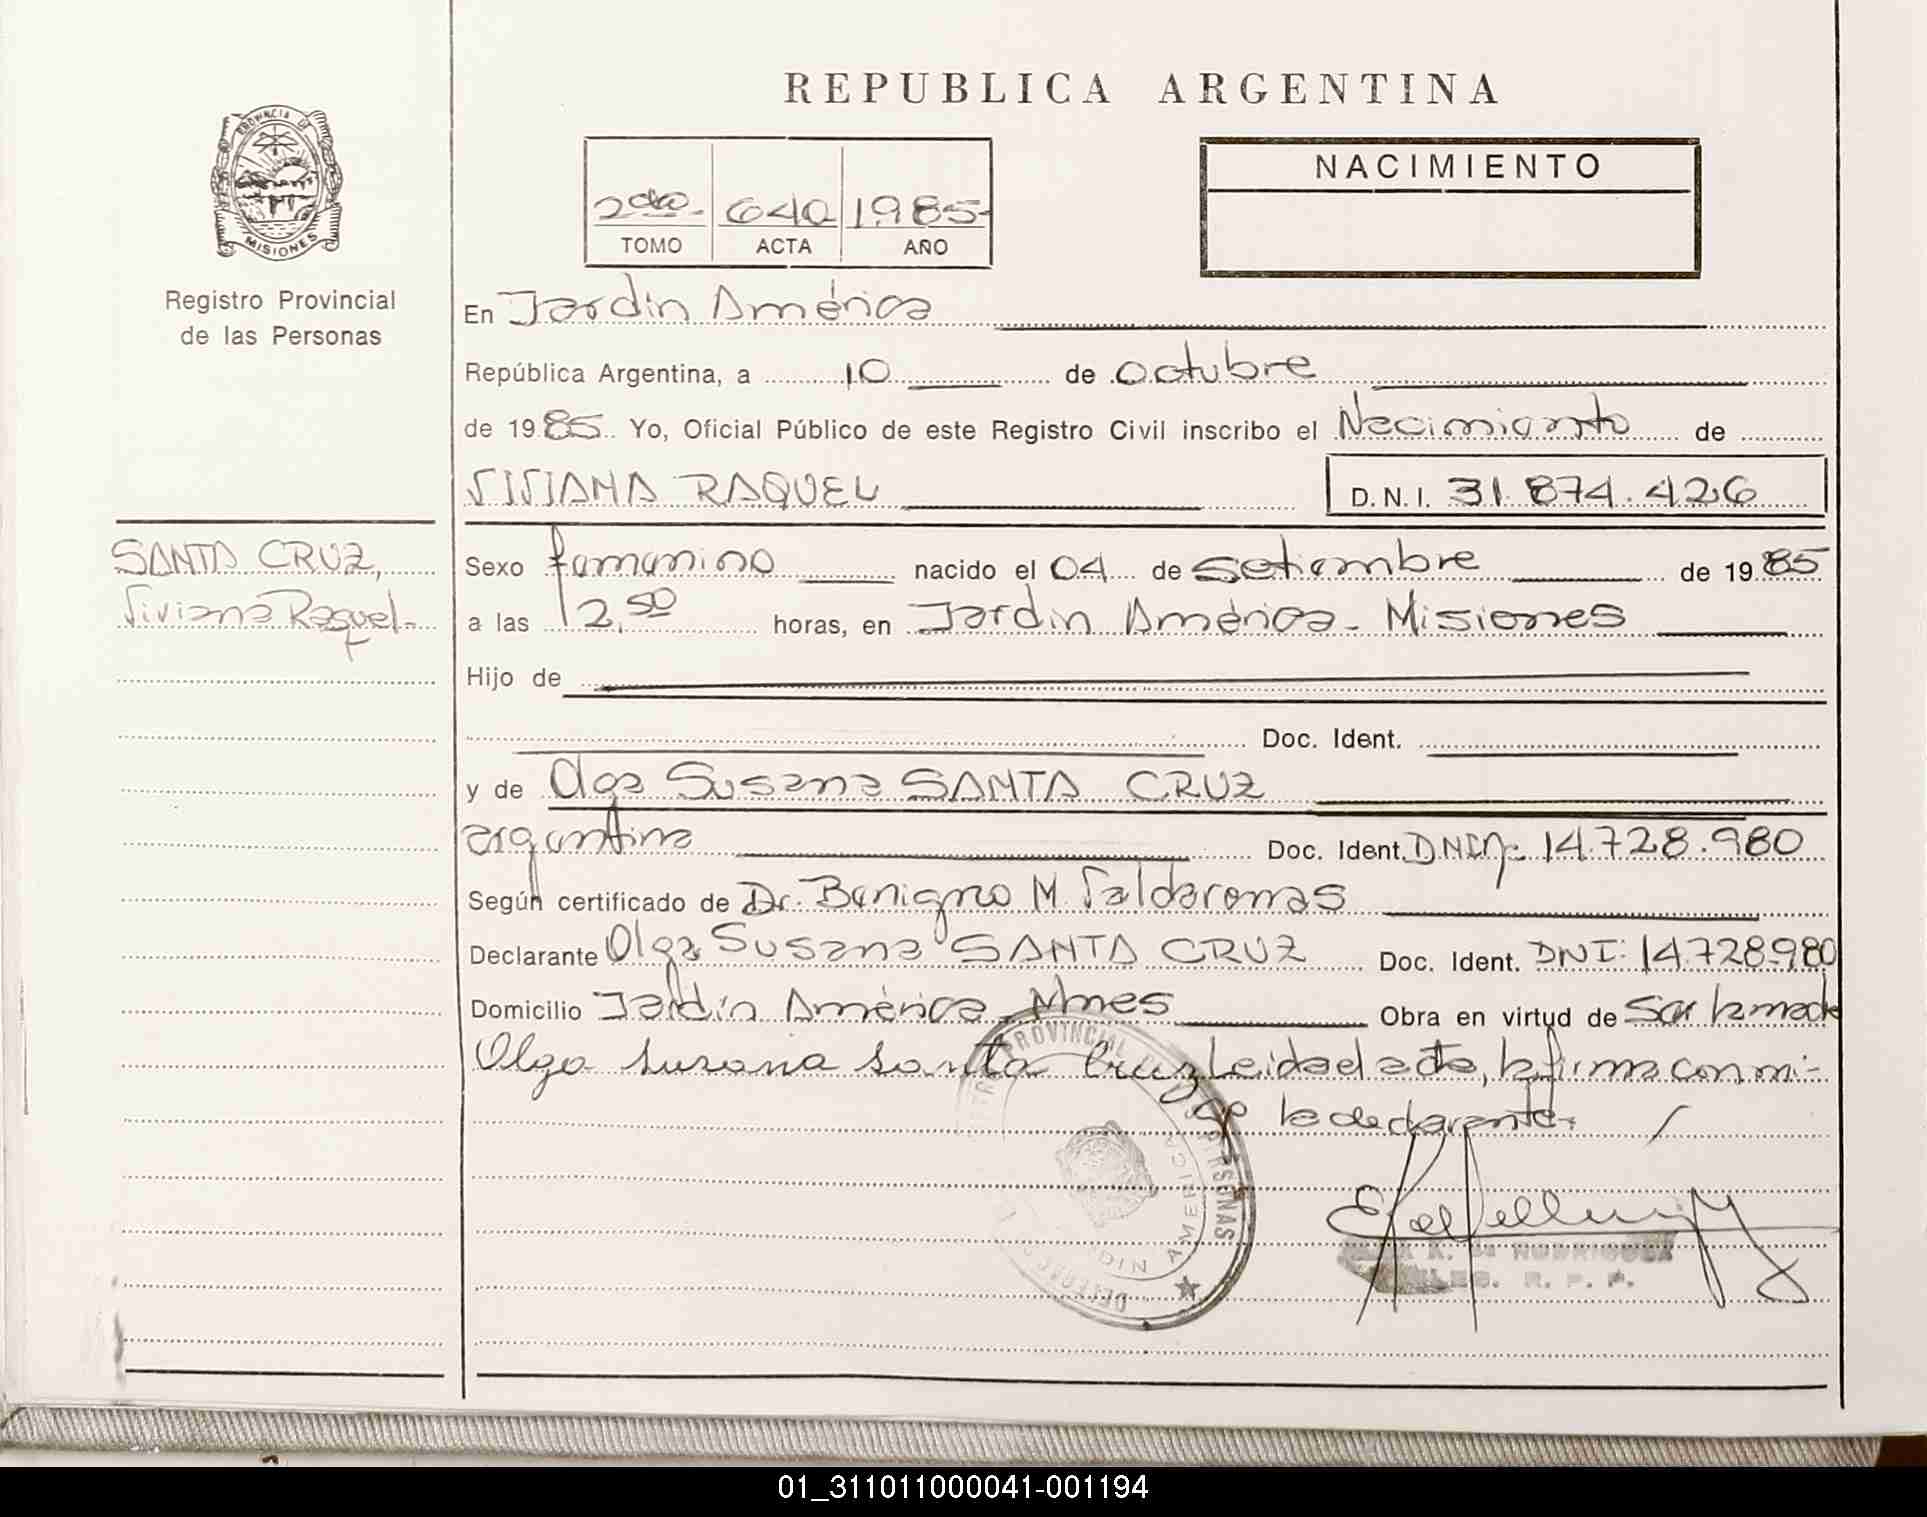 REPUBLICA ARGENTINA
PROVINCIA DE
MISIONES
Registro Provincial
de las Personas
2do. 640 1985-
TOMO ACTA AÑO
NACIMIENTO
En Jardín América
República Argentina, a 10 de octubre
de 1985 Yo, Oficial Público de este Registro Civil inscribo el Nacimiento de
VIVIANA RAQUEL D.N.I. 31.874.426
SANTA CRUZ,
Viviana Raquel.-
Sexo femenino nacido el 04 de setiembre de 1985
a las 12,50 horas, en Jardín América - Misiones
Hijo de
Doc. Ident.
y de Olga Susana SANTA CRUZ
argentina Doc. Ident. 14.728.980
Según certificado de Dr. Benigno M.
Declarante Olga Susana SANTA CRUZ Doc. Ident. DNI: 14.728.980
Domicilio Jardín América - Mnes Obra en virtud de ser la madre
Olga Susana Santa Cruz Leida el acta, la firma conmi-
go la declarante.
PROVINCIAL PERSONAS
AMERICA
K. de RODRIGUEZ
R. P. P.
01_311011000041-001194